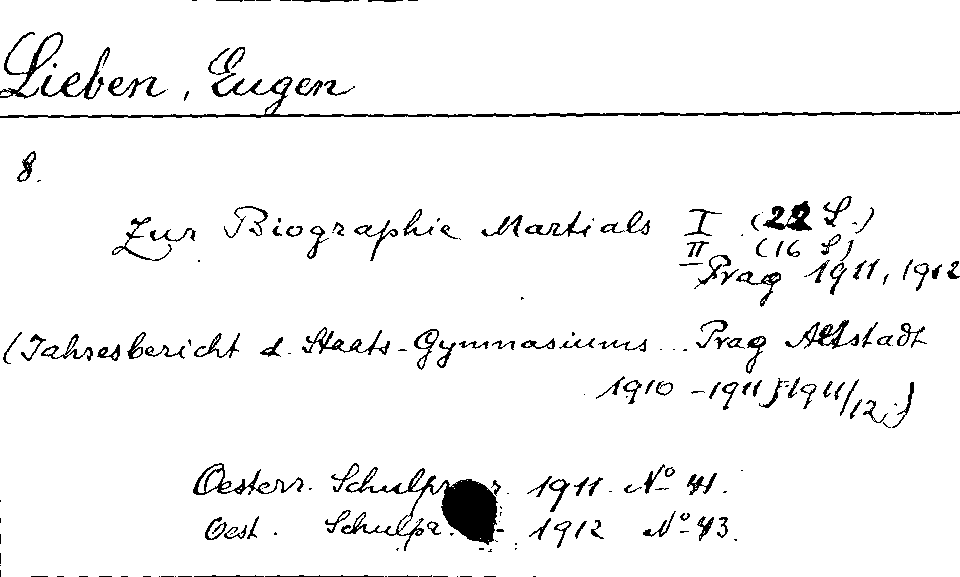 Lieben, Eugen
8.
Zur Biographie Martials I (22 S.)
II (16 S)
Prag 1911, 1912
(Jahresbericht d. Staats-Gymnasiums... Prag Altstadt
1910-1911 1911/12.)
Oesterr. 1911. No 41.
Oest. 1912 No 43.